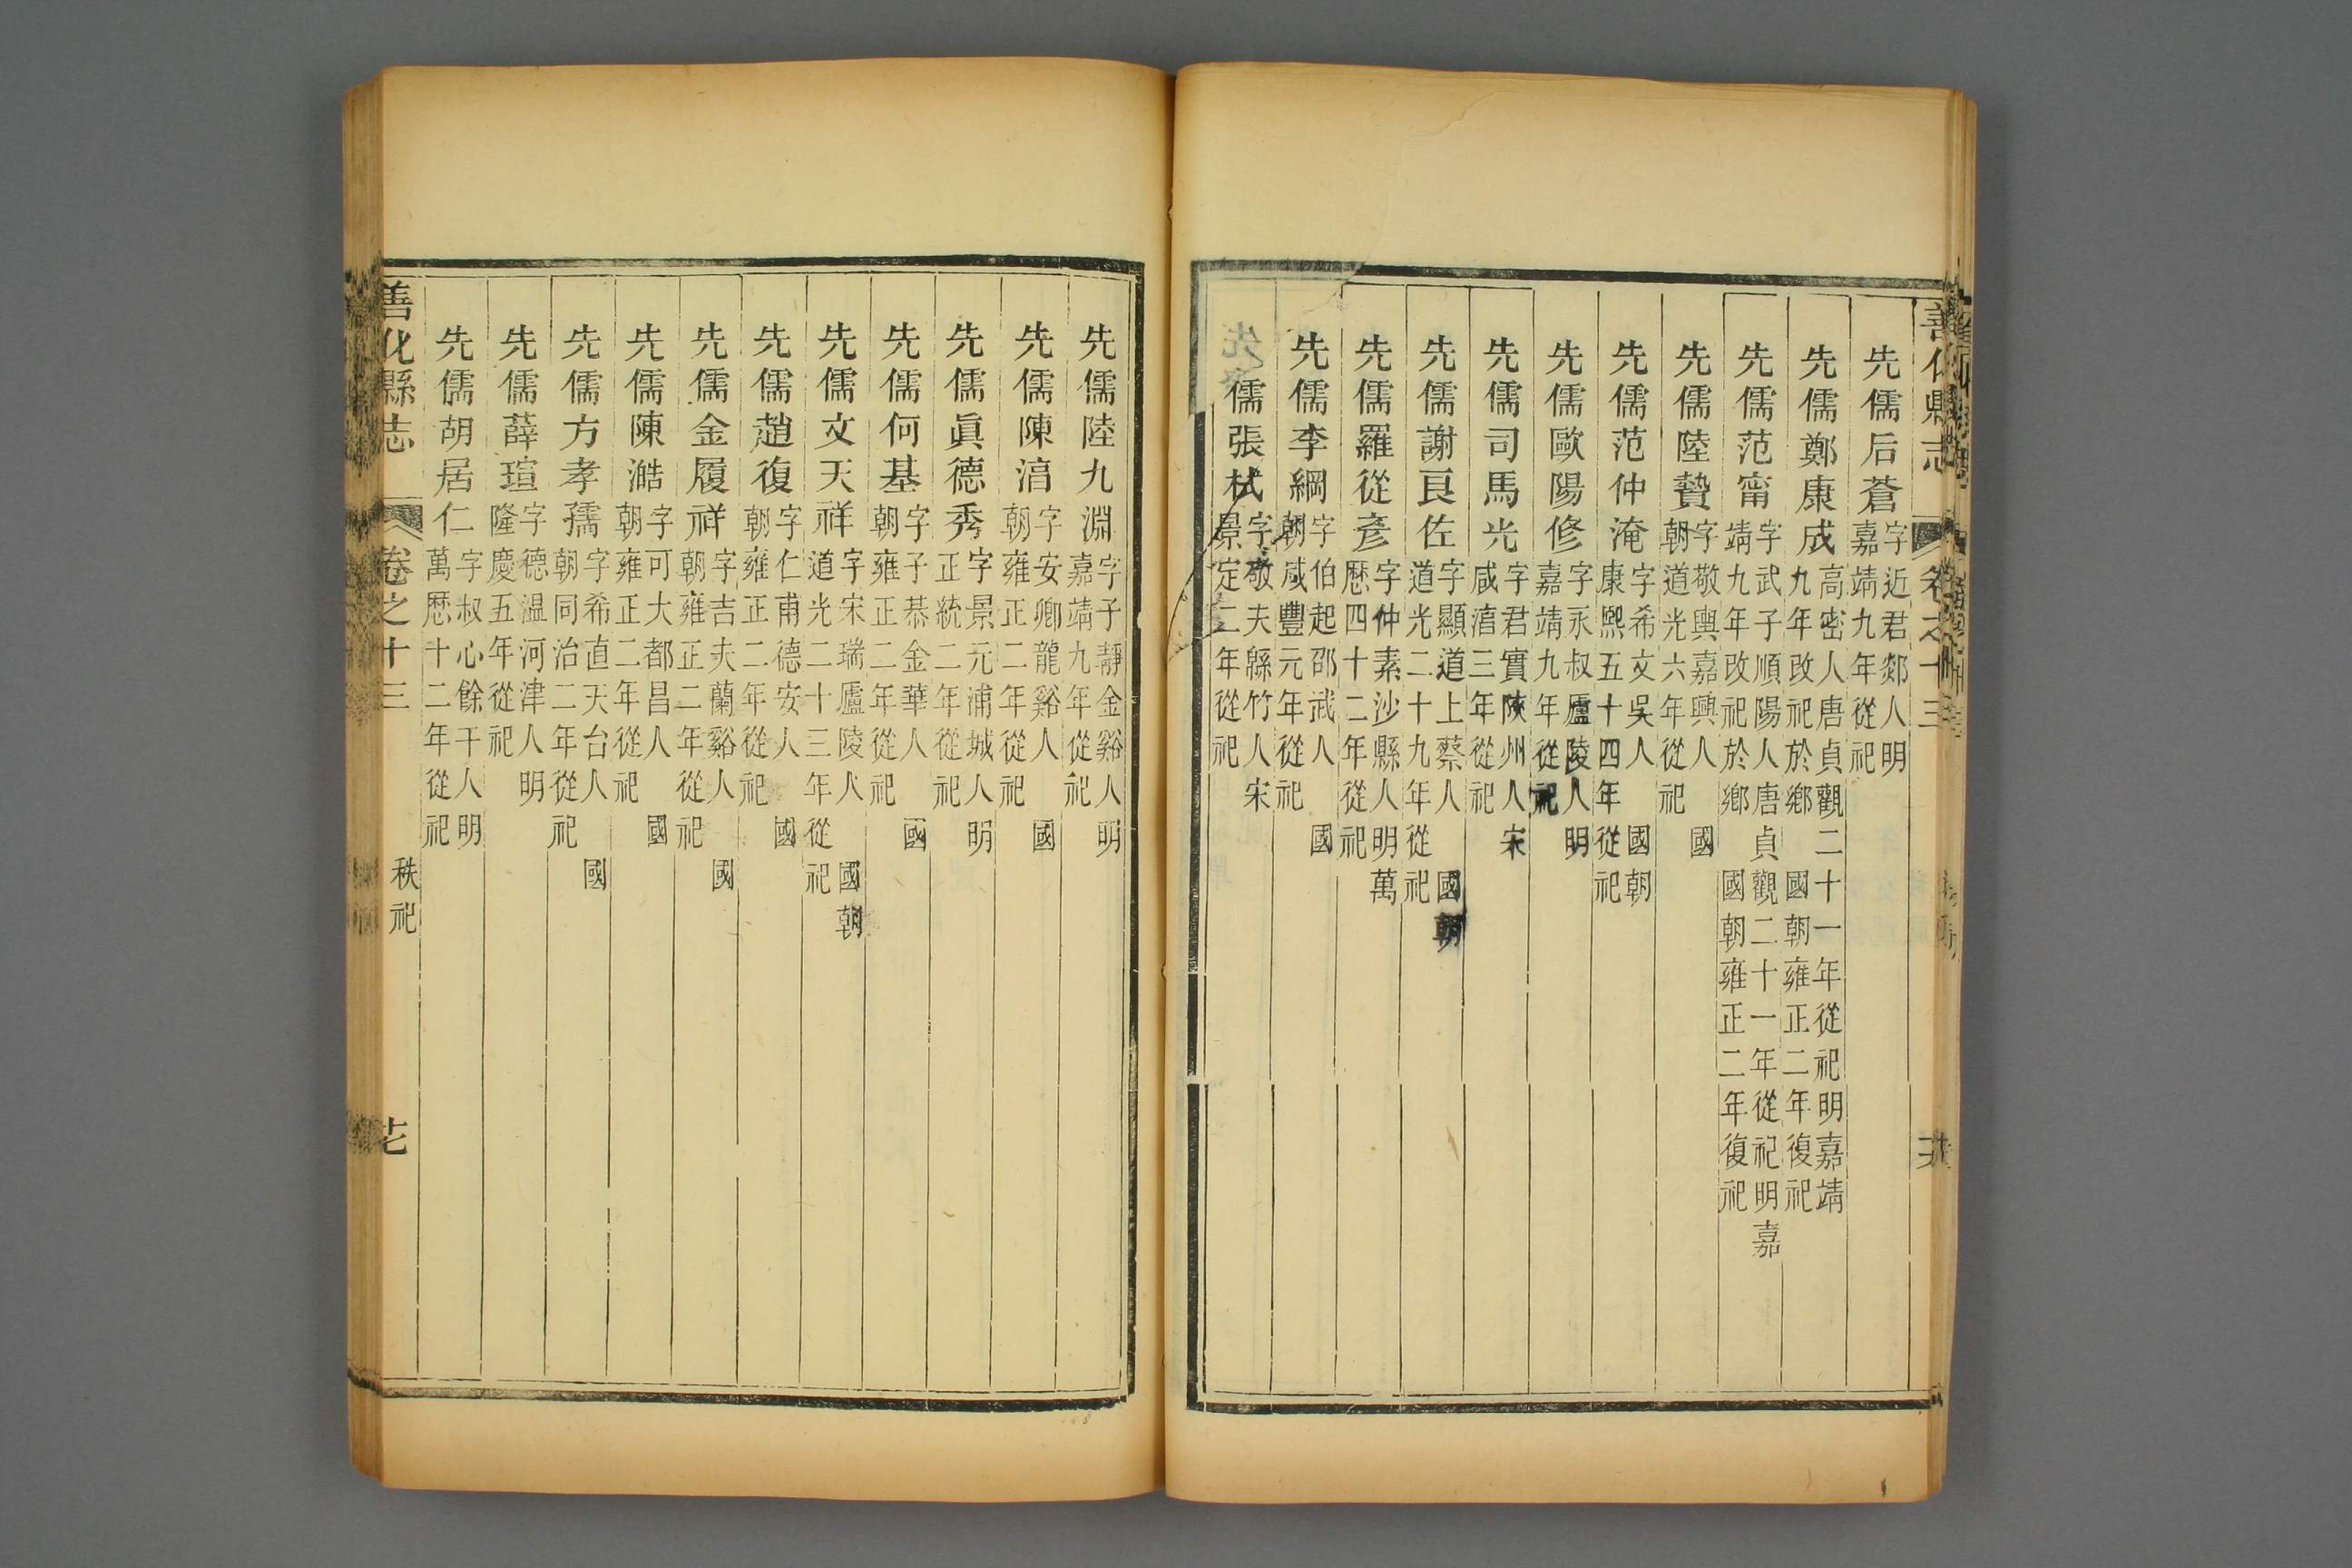 善化縣志 卷之十三 六
先儒后蒼字近君郯人明嘉靖九年從祀
先儒鄭康成高密人唐貞觀二十一年從祀明嘉靖九年改祀於鄉國朝雍正二年復祀
先儒范甯字武子順陽人唐貞觀二十一年從祀明嘉靖九年改祀於鄉國朝雍正二年復祀
先儒陸贄字敬輿嘉興人國朝道光六年從祀
先儒范仲淹字希文吳人國朝康熙五十四年從祀
先儒歐陽修字永叔廬陵人明嘉靖九年從祀
先儒司馬光字君實陝州人宋咸淳三年從祀
先儒謝良佐字顯道上蔡人國朝道光二十九年從祀
先儒羅從彥字仲素沙縣人明萬歷四十二年從祀
先儒李綱字伯起邵武人國朝咸豐元年從祀
先儒張栻字敬夫緜竹人宋景定二年從祀
先儒陸九淵字子靜金谿人明嘉靖九年從祀
先儒陳淳字安卿龍谿人國朝雍正二年從祀
先儒眞德秀字景元浦城人明正統二年從祀
先儒何基字子恭金華人國朝雍正二年從祀
先儒文天祥字宋瑞廬陵人國朝道光二十三年從祀
先儒趙復字仁甫德安人國朝雍正二年從祀
先儒金履祥字吉夫蘭谿人國朝雍正二年從祀
先儒陳澔字可大都昌人國朝雍正二年從祀
先儒方孝孺字希直天台人國朝同治二年從祀
先儒薛瑄字德溫河津人明隆慶五年從祀
先儒胡居仁字叔心餘干人明萬歷十二年從祀
善化縣志 卷之十三 秩祀 七